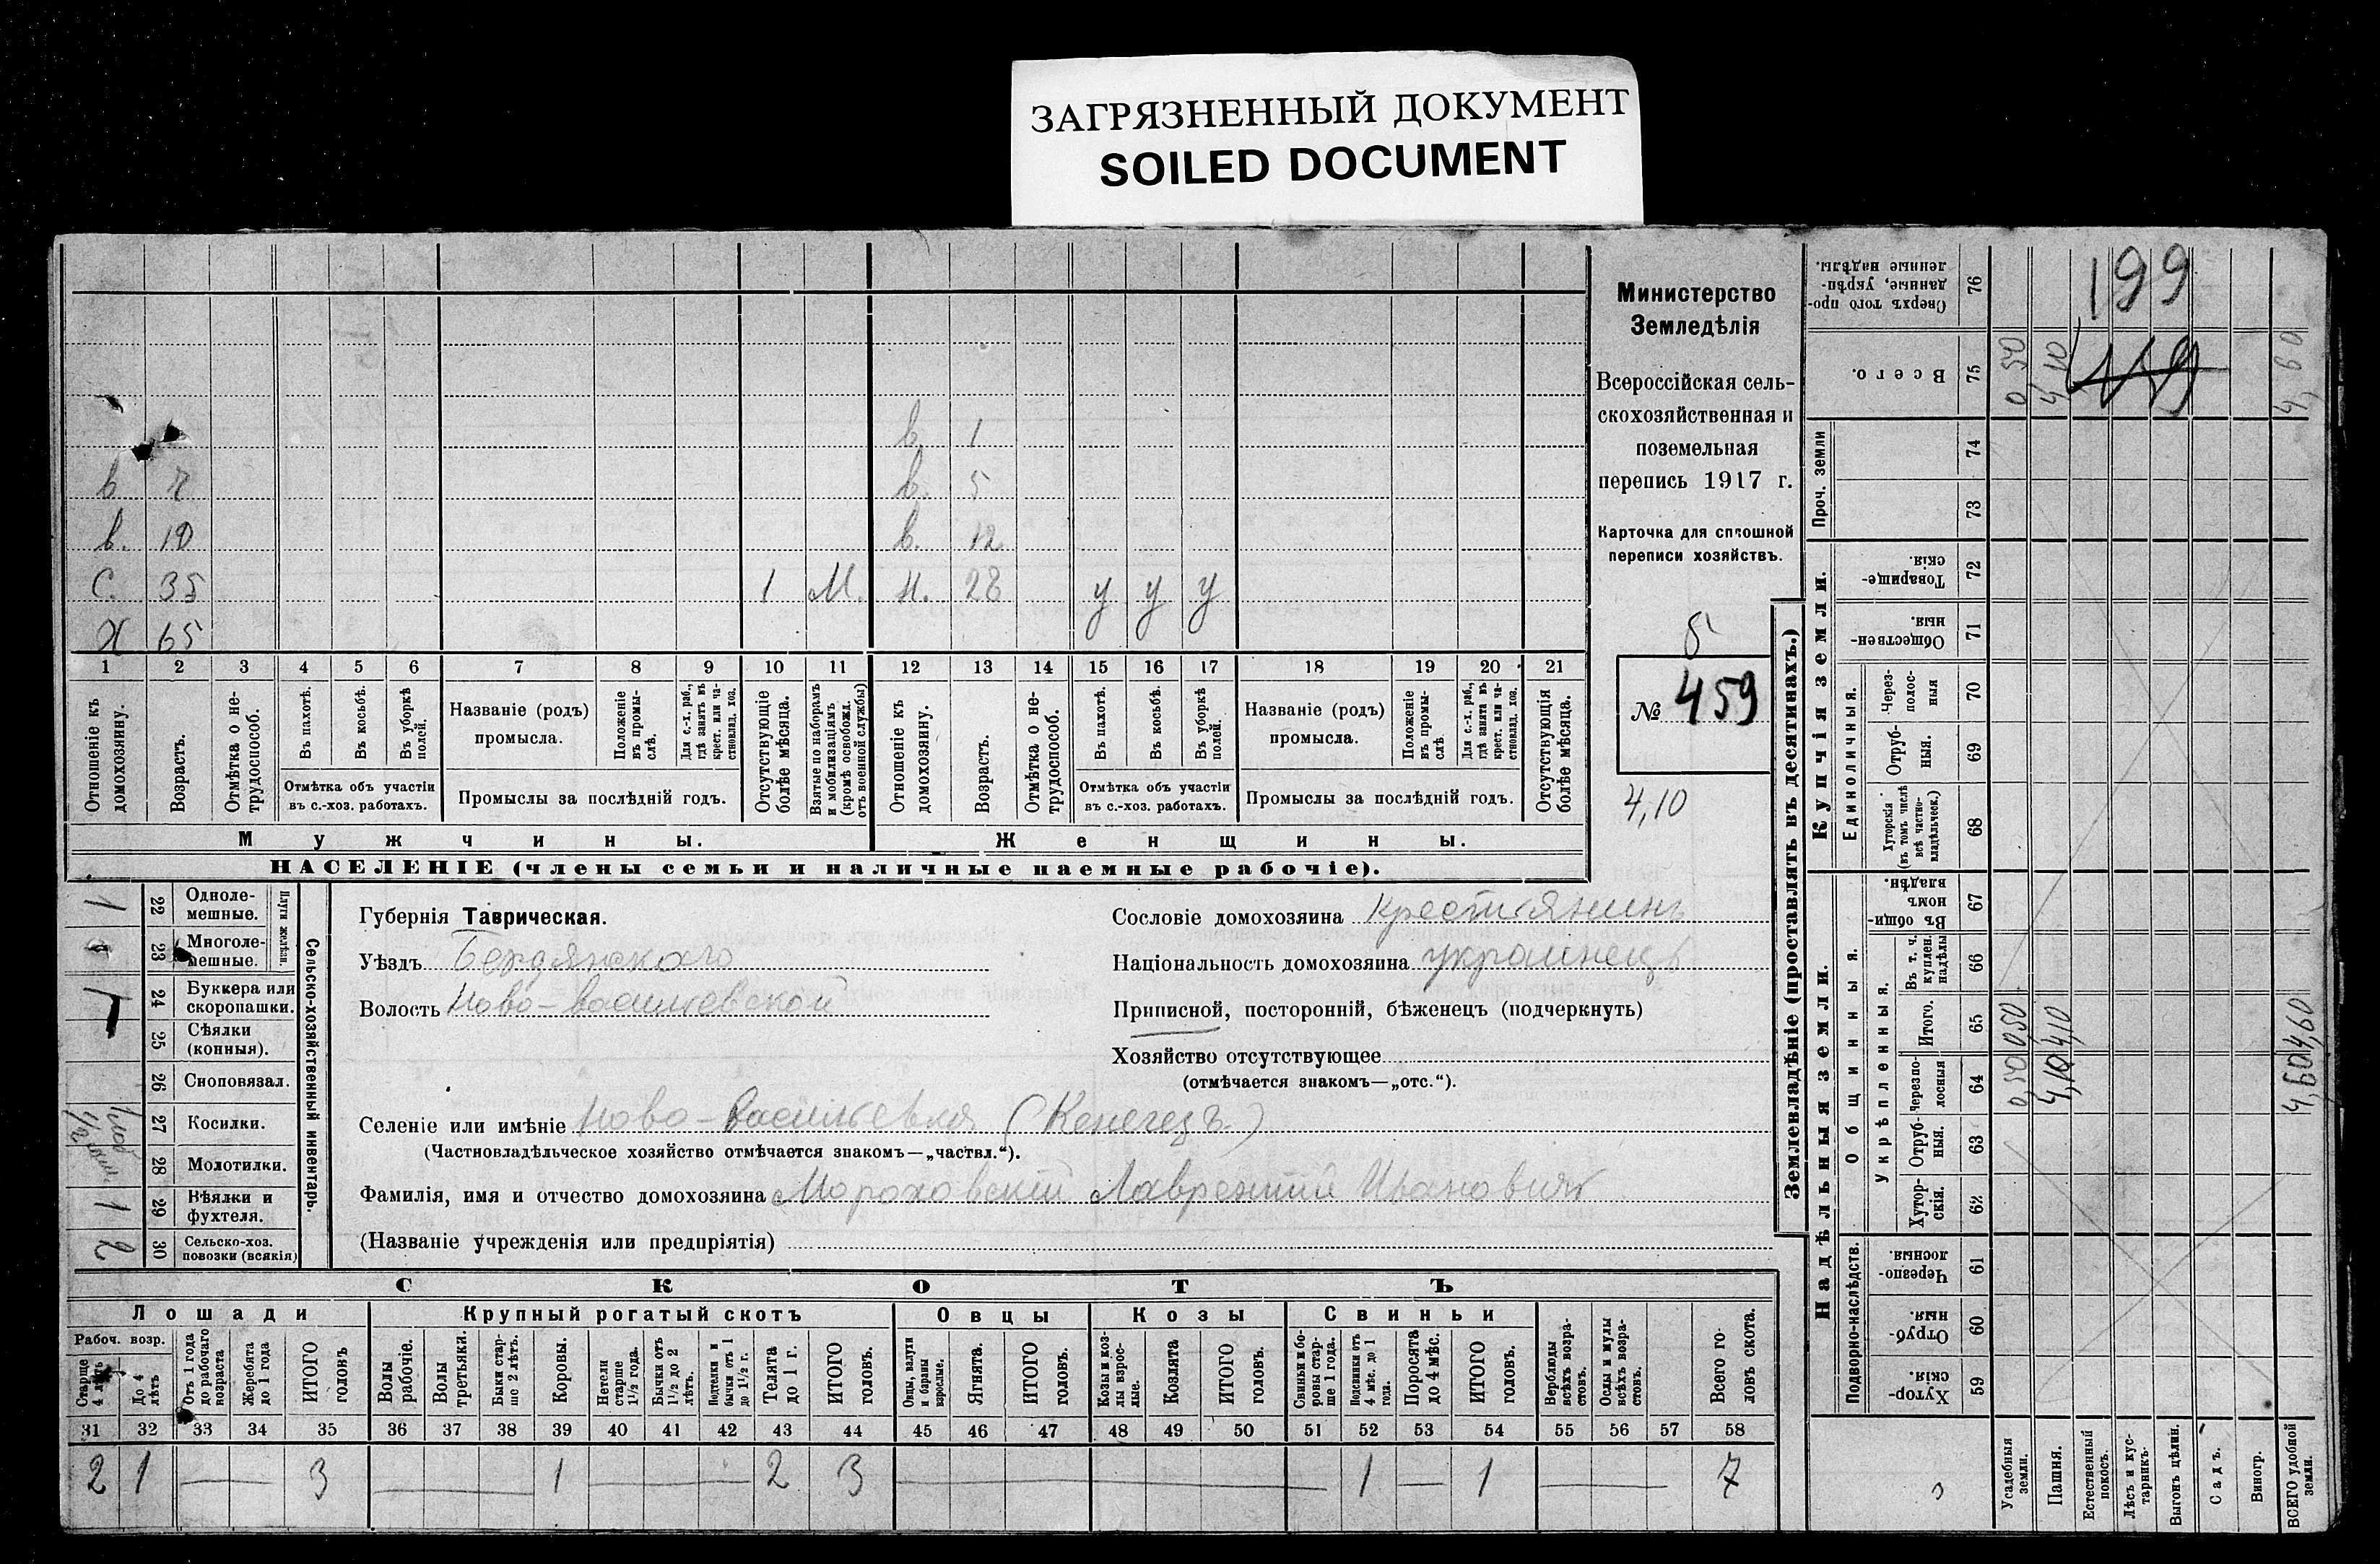 ЗАГРЯЗНЕННЫЙ ДОКУМЕНТ
SOILED DOCUMENT
в. 1
в 7 в. 5
в. 10 в. 12
С. 35 1 М. н. 28 у у у
Х 65
1 2 3 4 5 6 7 8 9 10 11 12 13 14 15 16 17 18 19 20 21
Отношеніе къ домохозяину.
Возрастъ.
Отмѣтка о не-трудоспособ.
Въ пахотѣ.
Въ косьбѣ.
Въ уборкѣ полей.
Отмѣтка объ участіи
въ с.-хоз. работахъ.
Названіе (родъ)
промысла.
Положеніе въ промы-слѣ.
Для с.-х. раб., гдѣ занятъ въ крест. или ча-стновлад. хоз.
Промыслы за послѣдній годъ.
Отсутствующіе болѣе мѣсяца.
Взятые по наборамъ и мобилизаціямъ (кромѣ освобожд. отъ военной службы)
Отношеніе къ домохозяину.
Возрастъ.
Отмѣтка о не-трудоспособ.
Въ пахотѣ.
Въ косьбѣ.
Въ уборкѣ полей.
Отмѣтка объ участіи
въ с.-хоз. работахъ.
Названіе (родъ)
промысла.
Положеніе въ промы-слѣ.
Для с.-х. раб., гдѣ занята въ крест. или ча-стновлад. хоз.
Промыслы за послѣдній годъ.
Отсутствующія болѣе мѣсяца.
Мужчины.
Женщины.
НАСЕЛЕНІЕ (члены семьи и наличные наемные рабочіе).
Министерство
Земледѣлія
Всероссійская сель-
скохозяйственная и
поземельная
перепись 1917 г.
Карточка для сплошной
переписи хозяйствъ.
№ 459
4,10
Сельско-хозяйственный инвентарь.
Плуги желѣзн.
1 22 Одноле-мешные.
23 Многоле-мешные.
24 Буккера или скоропашки.
25 Сѣялки (конныя).
26 Сноповязал.
27 Косилки.
28 Молотилки.
1 29 Вѣялки и фухтеля.
2 30 Сельско-хоз. повозки (всякія)
Губернія Таврическая.
Уѣздъ Бердянскаго
Волость Ново-Васильевской
Селеніе или имѣніе Ново-Васильевка (Кенегезъ)
(Частновладѣльческое хозяйство отмѣчается знакомъ—„частвл.“).
Фамилія, имя и отчество домохозяина Мороховскій Лаврентій Ивановичъ
(Названіе учрежденія или предпріятія)
Сословіе домохозяина Крестьянинъ
Національность домохозяина украинецъ
Приписной, посторонній, бѣженецъ (подчеркнуть)
Хозяйство отсутствующее
(отмѣчается знакомъ—„отс.“).
СКОТЪ
Лошади Крупный рогатый скотъ Овцы Козы Свиньи
Рабоч. возр.
Старше 4 лѣтъ
До 4 лѣтъ
Отъ 1 года до рабочаго возраста
Жеребята до 1 года
ИТОГО головъ
Волы рабочіе.
Волы третьяки.
Быки стар-ше 2 лѣтъ.
Коровы.
Нетели старше 1½ года.
Бычки отъ 1½ до 2 лѣтъ.
Подтелки и бычки отъ 1 до 1½ г.
Телята до 1 г.
ИТОГО головъ.
Овцы, валухи и бараны взрослые.
Ягнята.
ИТОГО головъ.
Козы и коз-лы взрос-лые.
Козлята
ИТОГО головъ.
Свиньи и бо-ровы стар-ше 1 года.
Подсвинки отъ 4 мѣс. до 1 года.
Поросята до 4 мѣс.
ИТОГО головъ.
Верблюды всѣхъ возра-стовъ.
Ослы и мулы всѣхъ возра-стовъ.
Всего го-ловъ скота.
31 32 33 34 35 36 37 38 39 40 41 42 43 44 45 46 47 48 49 50 51 52 53 54 55 56 57 58
2 1 — 3 — 1 — 2 3 — 1 — 1 — 7
Землевладѣніе (проставлять въ десятинахъ.)
199
Сверхъ того про-данные, укрѣп-ленные надѣлы. 76
Всего. 75 0 50 4,10 4,60
Проч. земли 74
73
Купчія земли.
Товарище-скія. 72
Обществен-ныя. 71
Единоличныя.
Через-полос-ныя 70
Отруб-ныя. 69
Хуторскія (въ томъ числѣ всѣ частно-владѣльческ.) 68
Надѣльныя земли.
Общинныя.
Въ общи-номъ владѣн. 67
Укрѣпленныя.
Въ т. ч. куплен. надѣлы 66
Итого. 65 0,50 4,10 4,60
Черезпо-лосныя 64 0,50 4,10 4,60
Отруб-ныя. 63
Хутор-скія. 62
Подворно-наслѣдств.
Черезпо-лосныя. 61
Отруб-ныя. 60
Хутор-скія. 59
Усадебныя земли.
Пашня.
Естественный покосъ.
Лѣсъ и кус-тарникъ.
Выгонъ цѣлин.
Садъ.
Виногр.
ВСЕГО удобной земли.